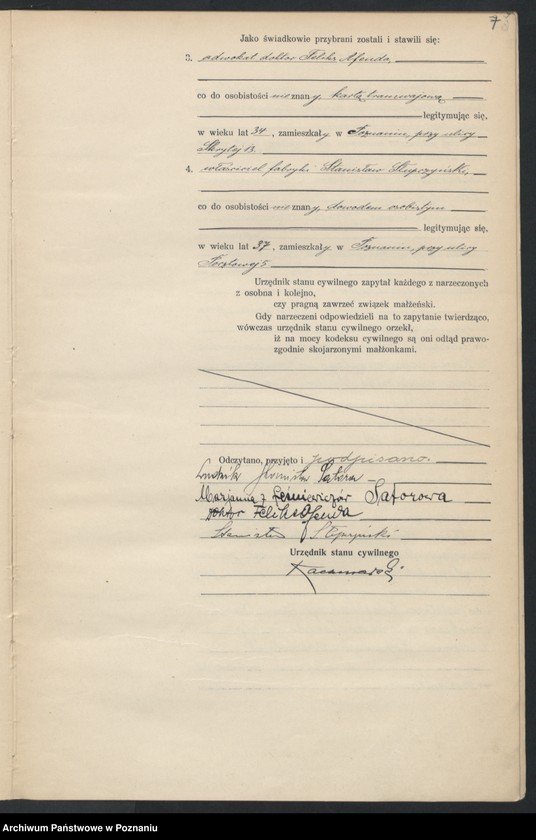 7
Jako świadkowie przybrani zostali i stawili się:
3. adwokat doktor Feliks Afenda,
co do osobistości nieznany, kartą tramwajową
legitymując się,
w wieku lat 34, zamieszkały w Poznaniu, przy ulicy
13.
4. właściciel fabryki Stanisław Słupczyński,
co do osobistości nieznany, dowodem osobistym
legitymując się,
w wieku lat 37, zamieszkały w Poznaniu, przy ulicy
Pocztowej 5
Urzędnik stanu cywilnego zapytał każdego z narzeczonych
z osobna i kolejno,
czy pragną zawrzeć związek małżeński.
Gdy narzeczeni odpowiedzieli na to zapytanie twierdząco,
wówczas urzędnik stanu cywilnego orzekł,
iż na mocy kodeksu cywilnego są oni odtąd prawo-
zgodnie skojarzonymi małżonkami.
Odczytano, przyjęto i podpisano.
Ludwik Satora
Marjanna z Leśniewiczów Satorowa
doktor Feliks Afenda
Stanisław Słupczyński
Urzędnik stanu cywilnego
Archiwum Państwowe w Poznaniu